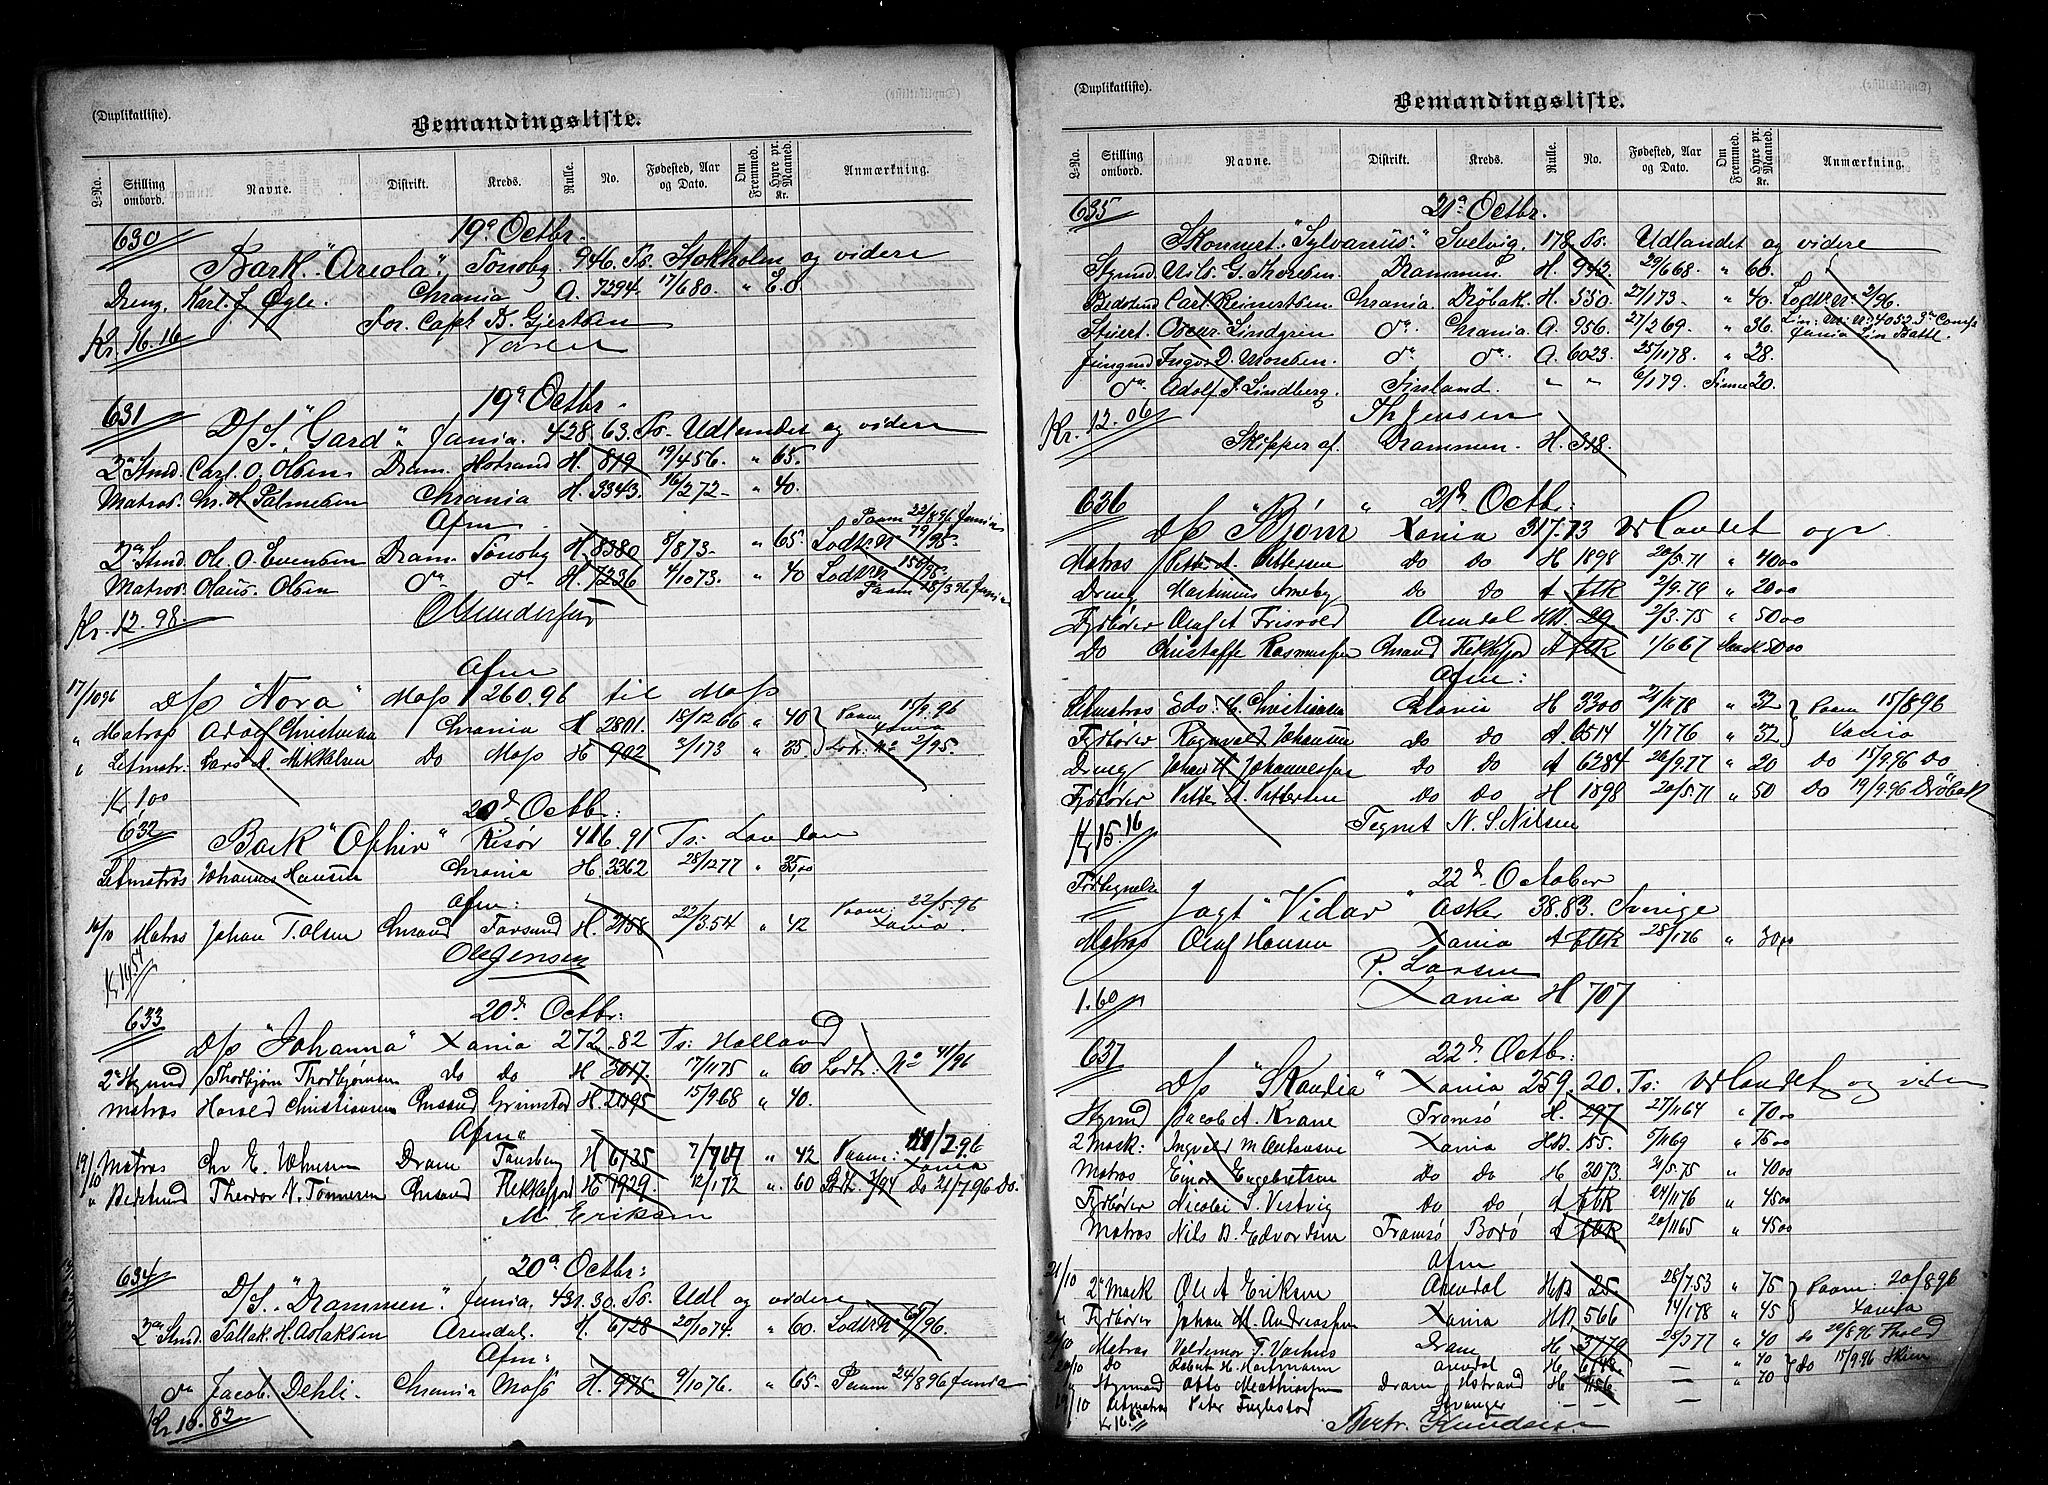 (Duplikatliste).
Bemandingsliste.
L-No. Stilling ombord. Navne. Distrikt. Kreds. Rulle. No. Fødested, Aar og Dato. Om Fremmed. Hyre pr. Maaned. Kr. Anmærkning.
630 19de Octbr.
Bark "Areola", Tønsbg. 946. Ts. Stokholm og videre
Dreng. Karl. J. Øgle. Chrania A. 7294. 17/6 80. "
Kr. 16.16 For Capt. B. Gjertsen
631 19de Octbr.
D/S. "Gard". Xania. 428.63. Ts. Udlandet og videre
2n Stmd. Carl. O. Olsen Dram. Holmstrand H. 819 19/4 56. " 65.
Matros. Chr. H. Palmesen Chrania H. 3343. 16/2 72 - " 40.
Afm. Paam 22/8 96 Xania
2n Stmd. Ole. O. Evensen Dram. Tønsbg H. 8380 8/8 73 - " 65. Lodtr. № 79/95.
Matros. Olaus. Olsen do do H. 7236 4/10 73. " 40 Lodtr № 150/95. Paam 25/3 96 Xania
Kr. 12.98. O Gundersen
Afm
17/10 96 D/S "Nora" Moss 260.96 til Moss
" Matros Adolf Christiansen Chrania H 2801. 18/12 66 " 40 Paam 15/9.96 Xania
" Letmatr. Lars A. Mikkelsen Do Moss H 902 3/1 73 " 35. Ldt. № 2/95.
Kr 1 00
632 20de Octbr:
Bark "Ophir" Risør 416.91 Ts. London
Letmatros Johannes Hansen Chrania H. 3362 28/12 77 " 35,00
Afm:
16/10 Matros Johan T. Olsen Chrsand Farsund H. 2158 22/3.54 " 42 Paam: 22/5.96 Xania.
Kr 14.54 Ole Jensen
633 20de Octbr:
D/S "Johanna" Xania 272.82 Ts: Holland
2n Stymd Thorbjørn Thorbjørnsen Do Do H 3017. 17/11 75 " 60 Ldt: № 41/96
Matros Harald Christiansen Chrsand Grimstad H. 2095 15/9.68 " 40.
Afm
19/10 Matros Chr E. Johnsen Dram Tønsberg H 6735 " 42 Paam: 7.96 Xania
" Bedstmd Theodor N. Tønnesen Chrsand Flekkefjord H. 1929. 12/1 72 ". 60 Ldt. 7/94 Do 21/7.96 Do.
M. Eriksen
634 20de Octbr:
D/S. "Drammen". Xania. 431.30. Ts. Udl og videre
2den Stmd. Tallak. H. Aslaksen Arendal. H. 6728 20/10 74. " 60. Lodtr. № 65/96.
Afm:
do Jacob. Dehli. Chrania Moss H. 975. 9/10 76. " 65. Paam 24/8 96 Xania
Kr. 10.82
(Duplikatliste).
Bemandingsliste.
L-No. Stilling ombord. Navne. Distrikt. Kreds. Rulle. No. Fødested, Aar og Dato. Om Fremmed. Hyre pr. Maaned. Kr. Anmærkning.
635 21de Octbr.
Skonnert. "Sylvanus." Svelvig. 178. Ts. Udlandet og videre
Stymd Nils. G. Thoresen. Drammen. H. 942. 29/6 68. " 60.
Bedstmd Carl Reinertsen. Chrania. Drøbak. H. 550. 27/1 73 - " 40. Lodtr. №: 2/96.
Stuert. Oscar. Lindgren. do. Chrania. A. 956. 27/2 69. " 36. Lin: №: 4052. 3de Comp. Xania Lin Batl.
Jungmd Ingv. D. Monsen. do do. A. 6023. 25/11 78. " 28.
do. Adolf. F. Lindberg. Finland. " " 6/1 79. Finne 20.
Kr. 12.06 Th Jensen
Skipper af. Drammen. H. 318.
636 21de Octbr:
D/S "Bjørn" Xania 317.73 Udlandet og v
Matros Petter A. Pettersen Do Do H 1898 20/5.71 " 40 00
Dreng Martinius Aneby Do Do A ftR 2/9.79 " 20 00
Fyrbøter Olaf A Frisvold Arendal HB. 29. 2/3.75 " 50 00
Do Christoffe Rasmussen Chrsand Flekkefjord A ftR 1/6 67 50 00
Afm:
Letmatros Edv: C. Christiansen Chrania H 3300 21/11 78 " 32 Paam 15/8 96
Fyrbøter Ragnvald Johansen Do Do A. 6514 4/7 76 " 32 Xania
Dreng Johan H. Johannessen Do Do A 6284 26/9.77 " 20 Do 15/9.96 Do
Fyrbøter Petter A. Pettersen Do Do H 1898 20/5.71 " 50 Do 19/9.96 Drøbak
Kr 15.16 Tegnet N. S. Nilsen
Forhyrelse 22de October
Jagt "Vidar" Asker 38.83. Sverige
Matros Olaf Hansen Xania A ftR 28/1 76 " 30,00
P. Larsen
1.60 Xania H 707
637 22de Octbr:
D/S "Skandia" Xania 259.20. Ts: Udlandet og viden
Stymd Jacob A. Krane Tromsø H. 297 27/11 64 " 70 00
2 Mask: Ingvald M. Antonsen Xania HB. 55. 5/11 69 " 76 00
Matros Einar Engebretsen Do Do H 3073. 21/5.75 " 40 00
Fyrbøter Nicolai S. Vestvig Do Do A ftR 24/11 76 " 45 00
Matros Nils B. Edvardsen Tromsø Bodø A ftR 20/11 65 " 45 00
Afm
21/10 2n Mask Ole A Eriksen Arendal HB 25. 28/7.53 " 75 Paam: 20/8 96
" Fyrbøter Johan M. Andreassen Xania HB 566 14/1 78 " 45 Xania
20/10 Matros Valdemar T. Varhus Dram H. 3779 28/3 77 " 40 Do 20/8 96
20/10 Do Robert H. Hartmann Arendal H. 6148 — " 40 Do 15/9.96 Skien
" Stymand Otto Mathiassen Dram Hstrand H 1156 — " 70
19/10 Letmatros Peter Fuglestad Stvanger — —
Kr 16.60 Bertr. Knudsen